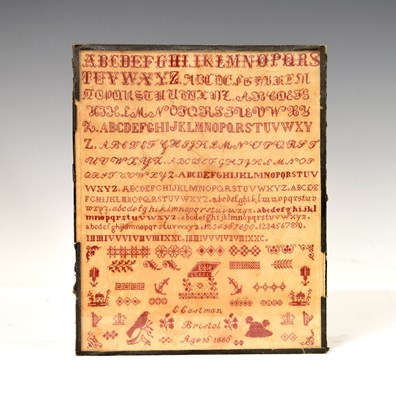 ABCDEFGHIJKLMNOPQRS
TUVWXYZ. ABCDEFGHIJKLM
NOPQRSTUVWXYZ. ABCDEFG
HIJKLMNOPQRSTUVWXY
Z. ABCDEFGHIJKLMNOPQRSTUVWXY
Z. ABCDEFGHIJKLMNOPQRST
UVWXYZ. ABCDEFGHIJKLMNOP
QRSTUVWXYZ. ABCDEFGHIJKLMNOPQRSTU
VWXYZ. ABCDEFGHIJKLMNOPQRSTUVWXYZ. ABCDE
FGHIJKLMNOPQRSTUVWXYZ. abcdefghijklmnopqrstu
vwxyz. abcdefghijklmnopqrstuvwxyz. abcdefghijkl
mnopqrstuvwxyz. abcdefghijklmnopqrstuvwxyz.
abcdefghijklmnopqrstuvwxyz. 1234567890. 1234567890.
E Eastman
Bristol
Age 16 1886